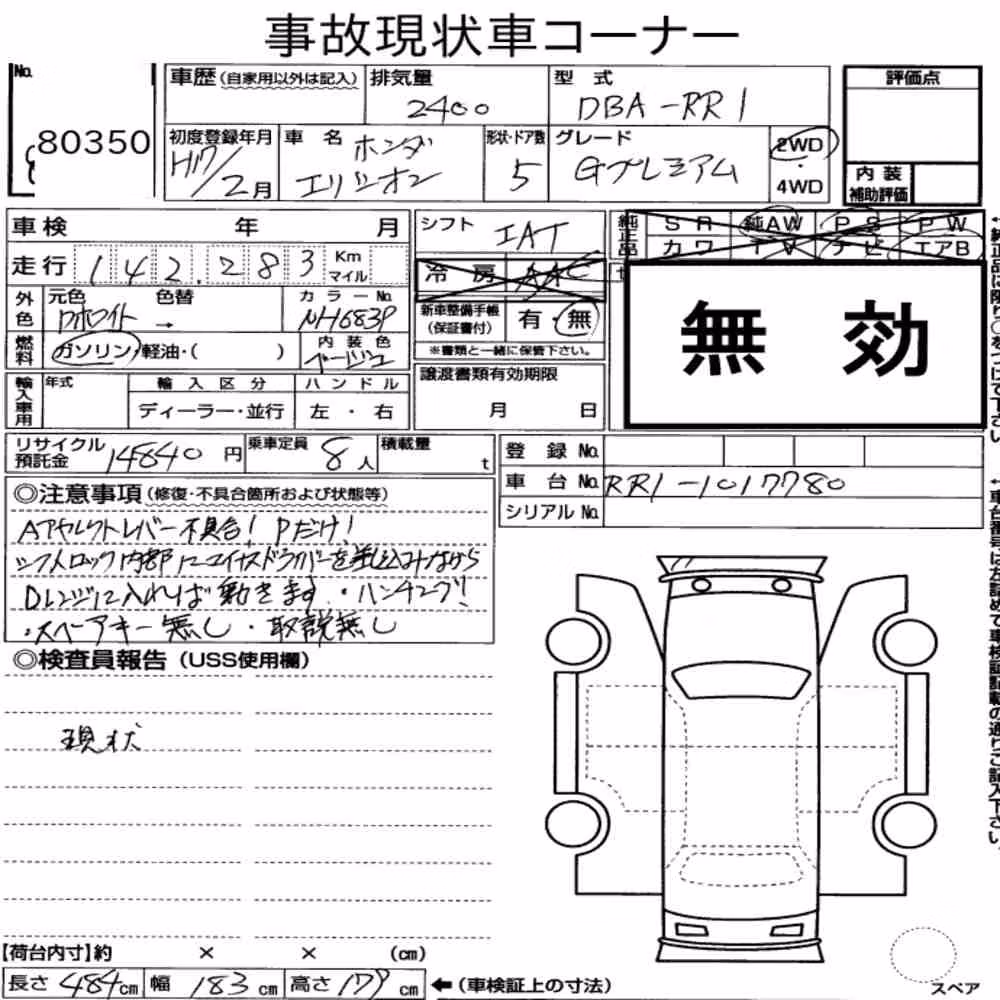 事故現状車コーナー
No.
80350
車歴(自家用以外は記入)
排気量
2400
型式
DBA-RR1
評価点
初度登録年月
H17/2月
車名
ホンダ
エリシオン
形状・ドア数
5
グレード
Gプレミアム
2WD
・
4WD
内装
補助評価
車検 年 月
シフト
IAT
純正品
SR 純AW PS PW
カワ TV ナビ エアB
走行 142,283 Km マイル
冷房 AAC
無効
外色
元色 色替
ホワイト →
カラーNo.
NH683P
新車整備手帳
(保証書付)
有・無
※書類と一緒に保管下さい。
燃料
ガソリン・軽油・( )
内装色
ベージュ
輸入車用
年式
輸入区分
ディーラー・並行
ハンドル
左・右
譲渡書類有効期限
月 日
リサイクル
預託金
14840円
乗車定員
8人
積載量
t
登録No.
車台No.
RR1-1017780
シリアルNo.
◎注意事項(修復・不具合箇所および状態等)
Aアセレクトレバー不具合! Pだけ!
シフトロック内部にマイナスドライバーを差し込みながら
Dレンジに入れれば動きます・ハンチング!
・スペアキー無し・取説無し
◎検査員報告(USS使用欄)
現状
【荷台内寸】約 × × (cm)
長さ 484cm 幅 183cm 高さ 179cm
←(車検証上の寸法)
スペア
←純正品に限り○をつけて下さい
←車台番号は左詰めで車検証記載の通りご記入下さい。